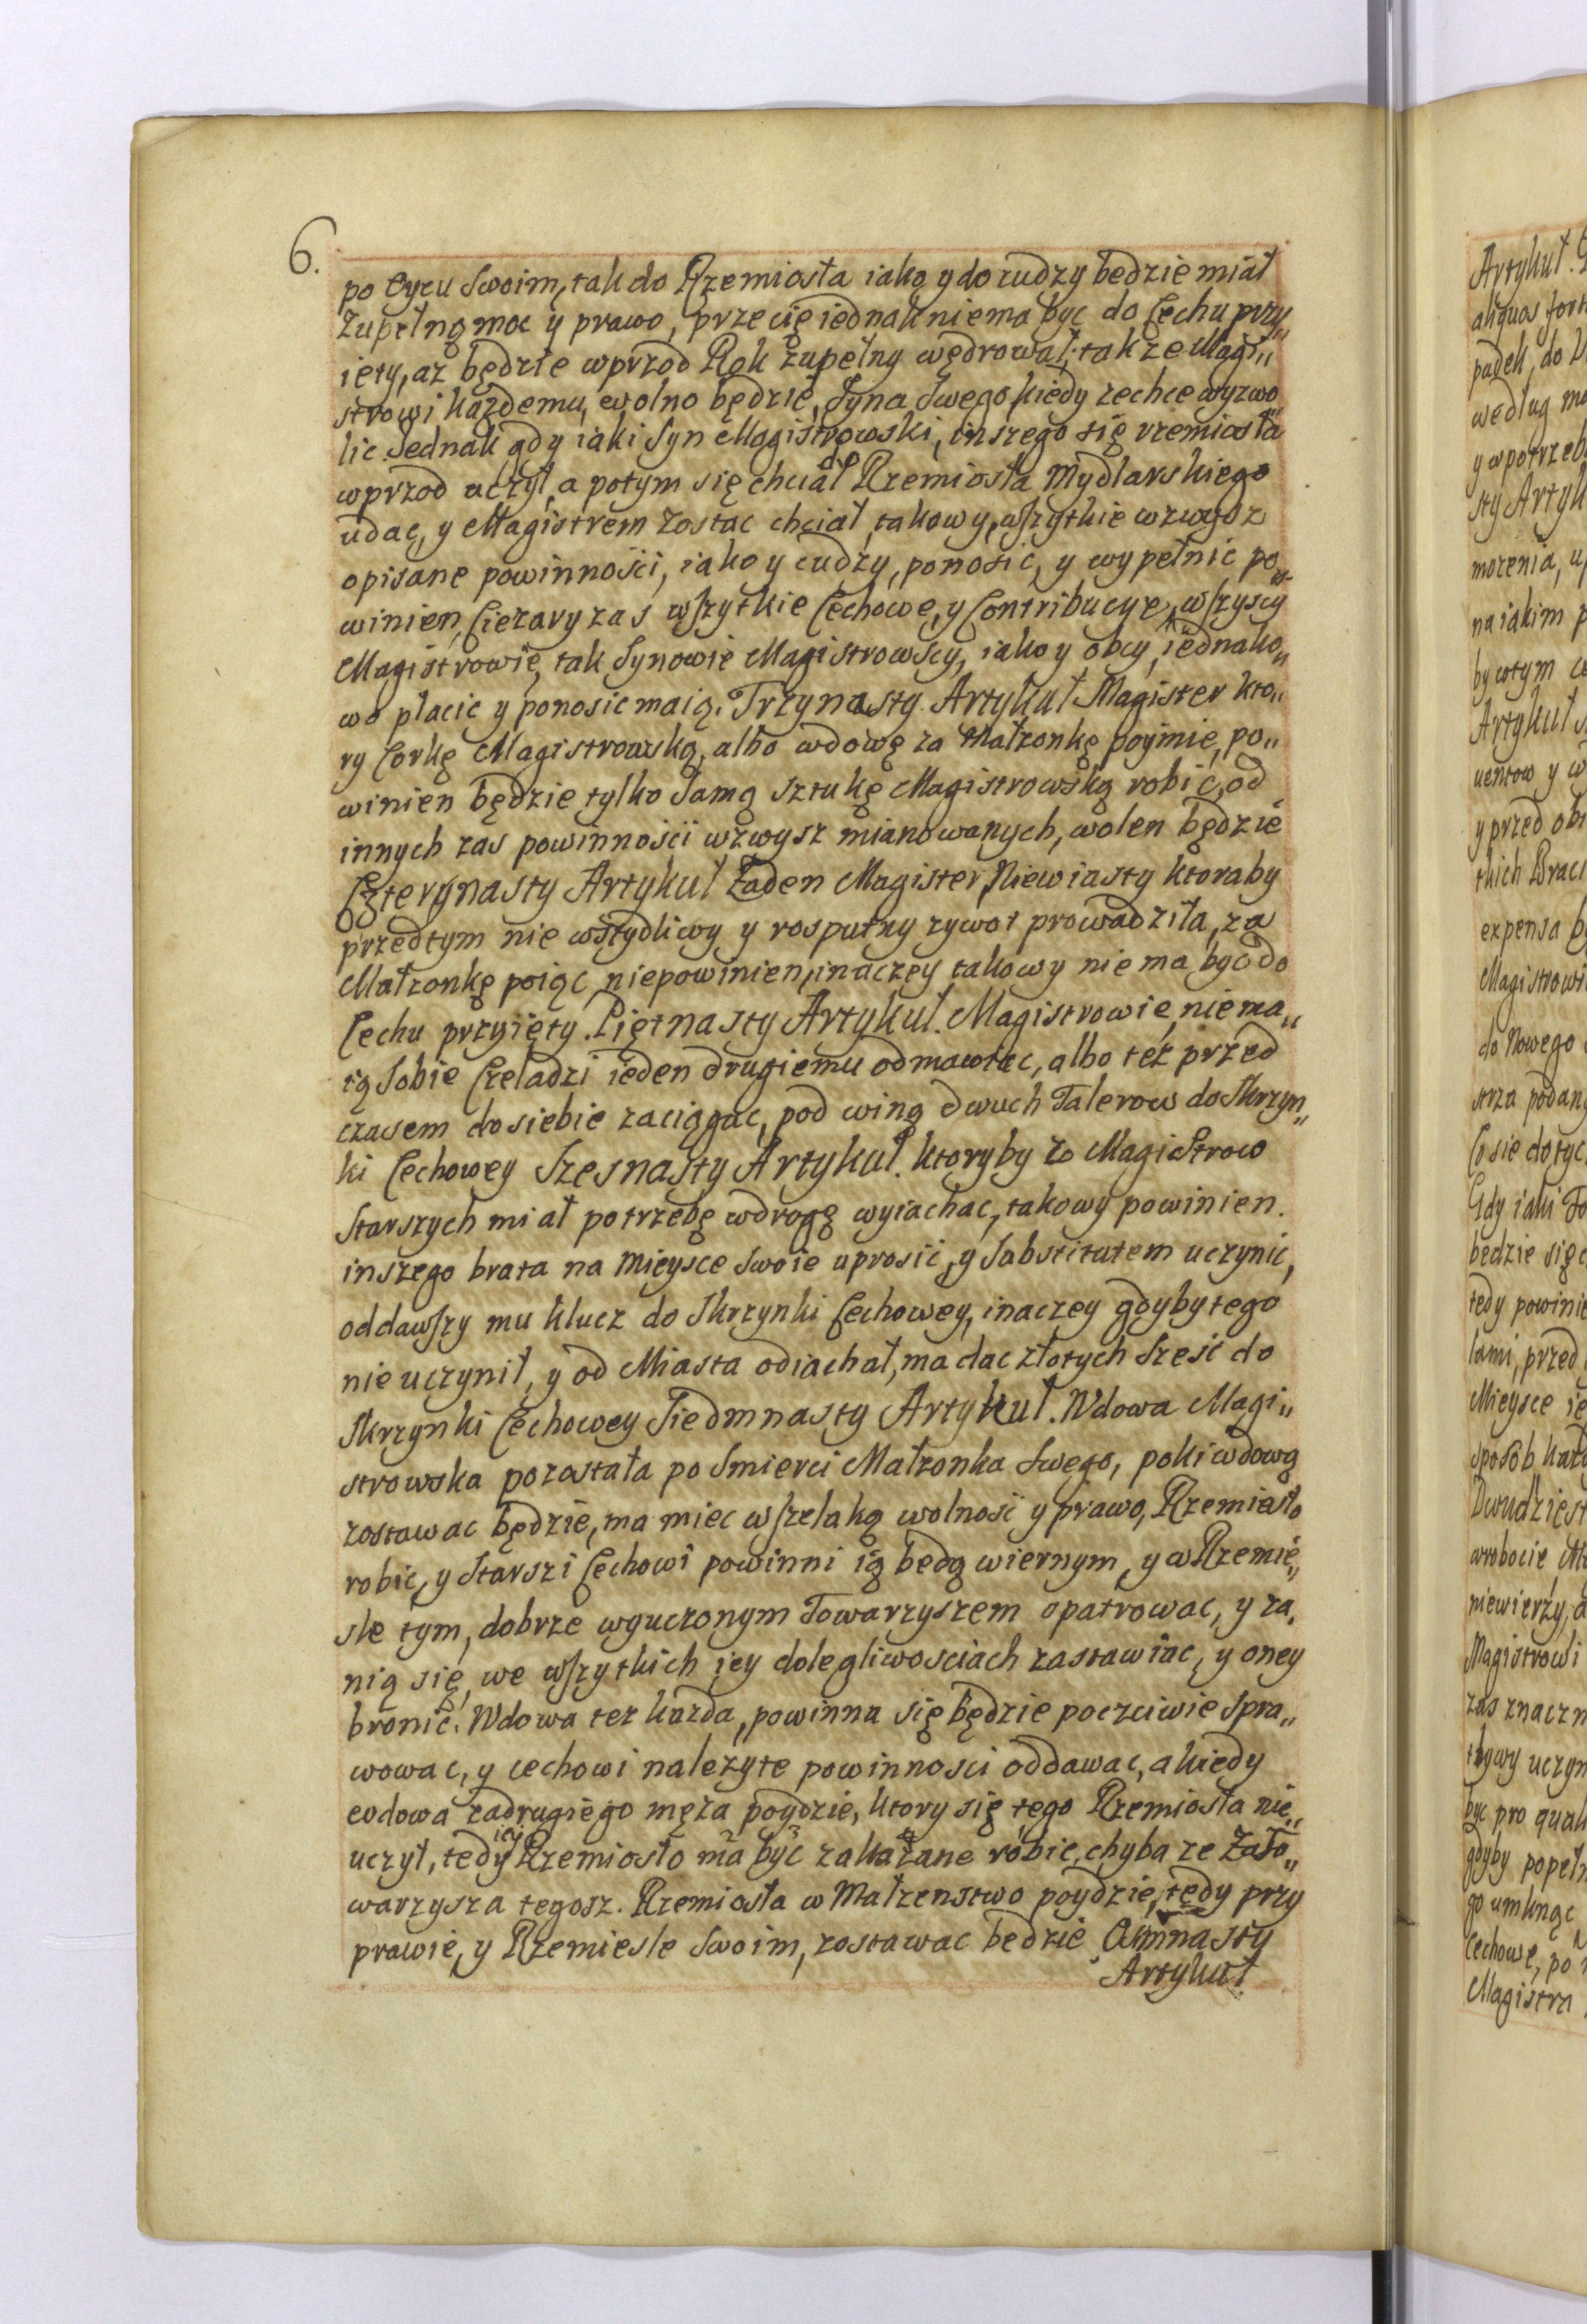 6.
po Oycu Swoim, tak do Rzemiosła iako y do cudzy będzie miał
Zupełną moc y prawo, przecię iednak niema byc do Cechu przy„
ięty, az będzie wprzod Rok zupełny wędrował; takze Magi„
strowi kazdemu wolno będzie, Syna Swego kiedy zechce wyzwo„
lic. Jednak gdy iaki Syn Magistrowski, inszego się rzemiosła
wprzod uczył, a potym się chciał do Rzemiosła Mydlarskiego
udac, y Magistrem Zostac chciał, takowy, wszytkie wzwysz
opisane powinnosci, iako y cudzy, ponosic, y wypełnic po„
winien, Ciezary zas wszytkie Cechowe, y Contribucye, wszyscy
Magistrowie, tak Synowie Magistrowscy, iako y obcy, iednako„
wo płacic y ponosic maią. Trzynasty Artykuł Magister kto„
ry Corkę Magistrowską, albo wdowę za Małzonkę poymie, po„
winien będzie tylko Samą sztukę Magistrowską robic, od
innych zas powinnosci wzwysz mianowanych, wolen będzie
Czterynasty Artykuł Zaden Magister, Niewiasty ktoraby
przedtym nie wstydliwy y rosputny zywot prowadziła, za
Małzonkę poiąc niepowinien, inaczey takowy nie ma byc do
Cechu przyięty. Piętnasty Artykuł. Magistrowie, nie ma„
ią Sobie Czeladzi ieden drugiemu odmawiac, albo tez przed
czasem do siebie zaciągac, pod winą dwuch Talerow do Skrzyn„
ki Cechowey Szesnasty Artykuł. ktoryby z Magistrow
Starszych miał potrzebę wdrogę wyiachac, takowy powinien.
inszego brata na Mieysce Swoie uprosic, y Substitutem uczynic,
oddawszy mu klucz do Skrzynki Cechowey, inaczey gdyby tego
nie uczynił, y od Miasta odiachał, ma dac złotych Szesc do
Skrzynki Cechowey Siedmnasty Artykuł. Wdowa Magi„
strowska pozastała po Smierci Małzonka Swego, poki wdową
zostawac będzie, ma miec wszelaką wolnosc y prawo, Rzemiesło
robic, y Starszi Cechowi powinni ią bedą wiernym, y w Rzemie„
sle tym, dobrze wyuczonym Towarzyszem opatrowac, y za,
nią się, we wszytkich iey dolegliwosciach zastawiac, y oney
bronic. Wdowa tez kazda, powinna się będzie poczciwie spra„
wowac, y cechowi nalezyte powinnosci oddawac, a kiedy
wdowa zadrugiego męza poydzie, ktory się tego Rzemiosła nie„
uczył, tedy iey Rzemiosło ma byc zakazane robic, chyba ze Zato„
warzysza tegosz. Rzemiosła w Małzenstwo poydzie, tedy przy
prawie, y Rzemiesle Swoim, zostawac bedzie Osmnasty
Artykuł
Artykuł.
aliquos
padek, do
według
sty
morenia,
na iakim
by wtym
Artykuł
uentow y
y przed
tkich Braci
expensa
Magistrowi
do Nowego
strza
Co sie
Gdy iaki
bedzie się
tedy
lami, przed
Mieysce
sposob
wrobocie
niewierzy,
Magistrowi
zas
uczyn
byc pro
gdyby
go umknąc
Cechowe, po
Magistra